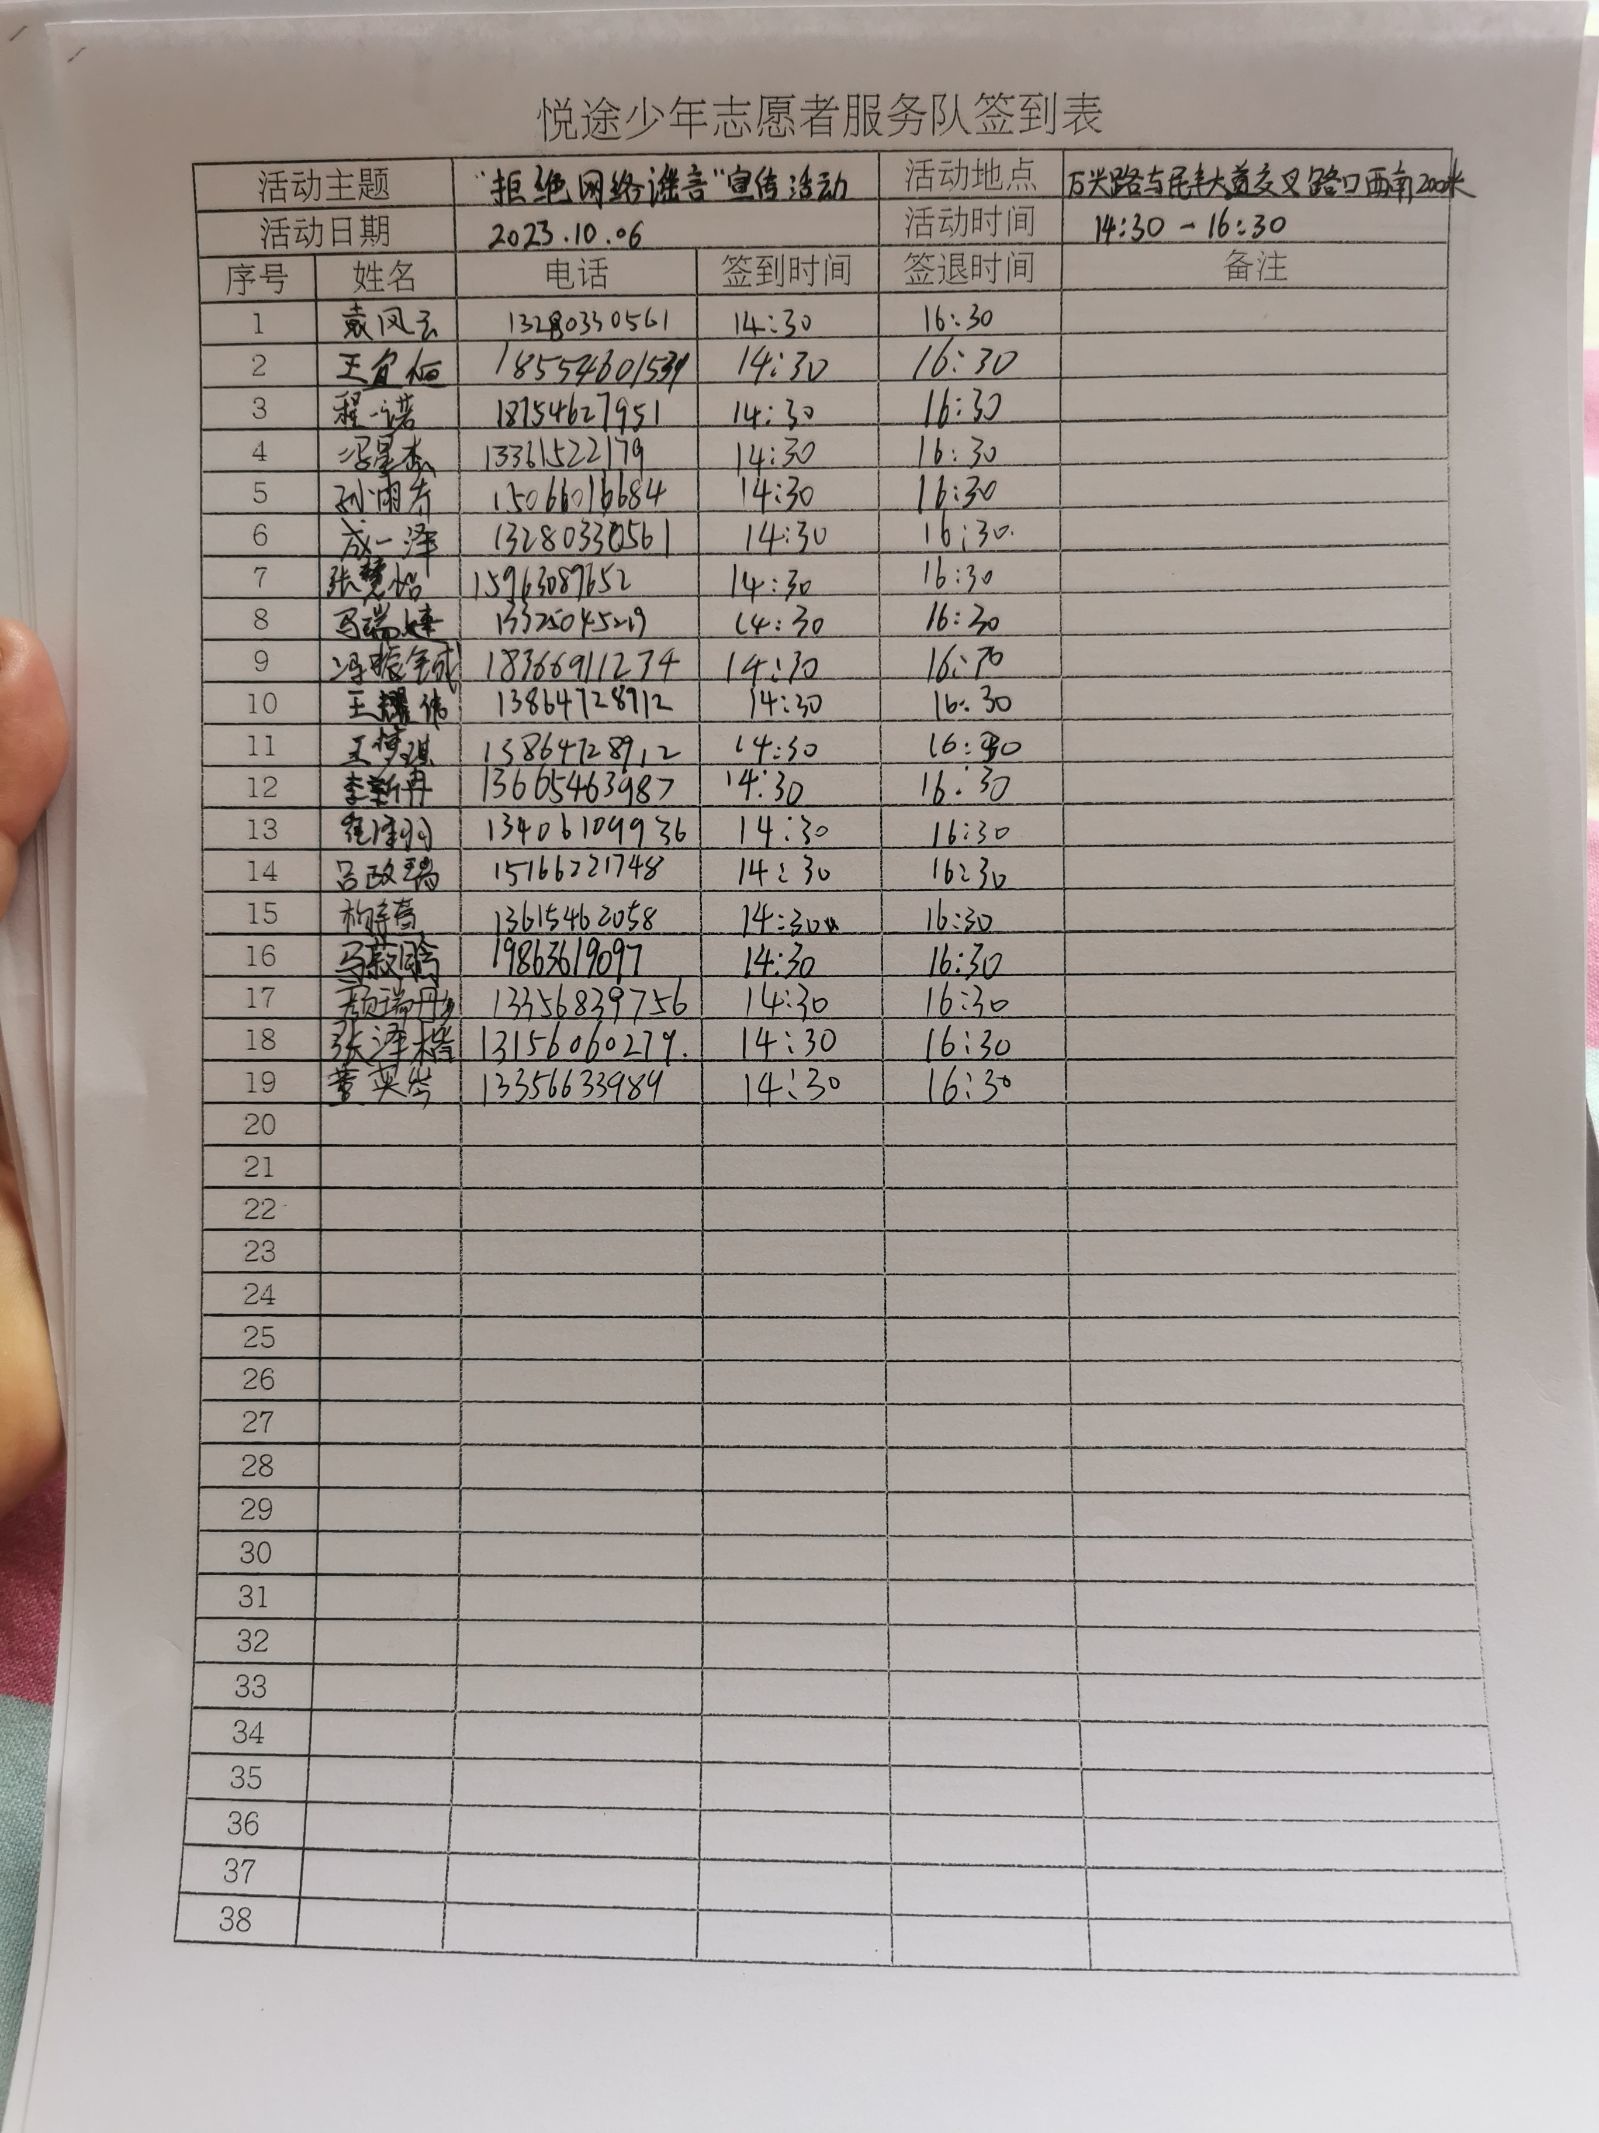 悦途少年志愿者服务队签到表
活动主题 "拒绝网络谣言"宣传活动 活动地点 万兴路与民丰大道交叉路口西南200米
活动日期 2023.10.06 活动时间 14:30-16:30
序号 姓名 电话 签到时间 签退时间 备注
1 戴风云 13280330561 14:30 16:30
2 王宜恒 18554601539 14:30 16:30
3 程一诺 18754627951 14:30 16:30
4 冯星杰 13361522179 14:30 16:30
5 孙雨乔 15066016684 14:30 16:30
6 成一泽 13280330561 14:30 16:30.
7 张慧怡 15963089652 14:30 16:30
8 马瑞婕 13325045219 14:30 16:30
9 冯振 18366911234 14:30 16:30
10 王耀伟 13864728912 14:30 16:30
11 王梦琪 13864728912 14:30 16:30
12 李新冉 13665463987 14:30 16:30
13 13406109936 14:30 16:30
14 吕政瑞 15166221748 14:30 16:30
15 13615462058 14:30 16:30
16 马 19863619097 14:30 16:30
17 颜瑞丹 13356839756 14:30 16:30
18 张泽楷 13156060279. 14:30 16:30
19 董英岑 13356633989 14:30 16:30
20
21
22
23
24
25
26
27
28
29
30
31
32
33
34
35
36
37
38